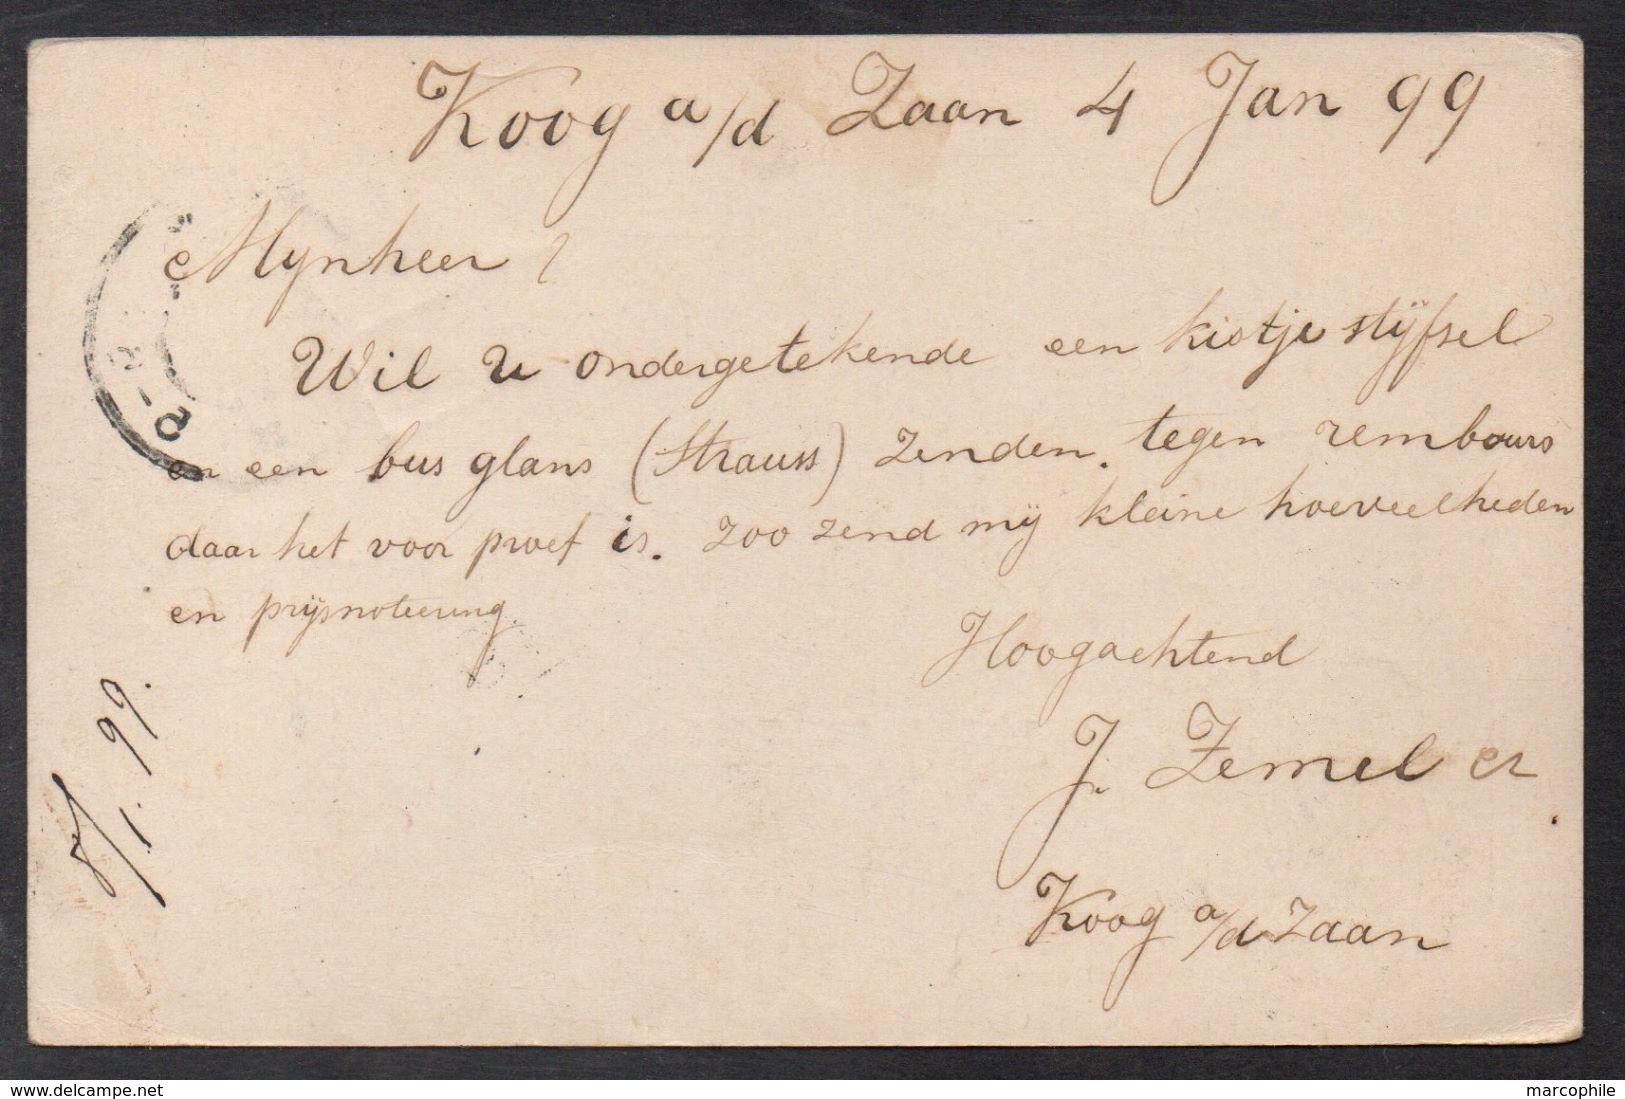 Koog a/d Zaan 4 Jan 99
Mynheer
Wil U ondergetekende een kistje stijfsel
en een bus glans (Strauss) zenden. tegen rembours
daar het voor proef is. zoo zend mij kleine hoeveelheden
en prijsnoteering.
Hoogachtend
J. Zemel er
Koog a/d Zaan
7/1. 99.
delcampe.net
marcophile